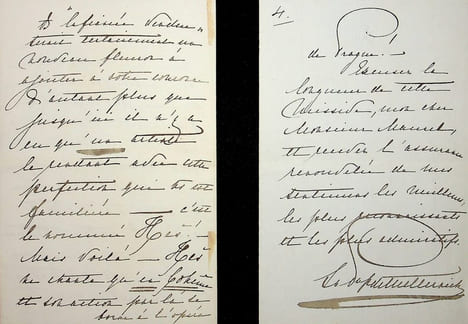 "la fiancée vendue"
serait certainement un
nouveau fleuron à
ajouter à votre couronne
d'autant plus que
jusqu'ici il n'y a
eu qu'un artiste
le rendant avec cette
perfection que vous est
familière — c'est
le nommé Heš —
Mais voilà — Heš
ne chante qu'en Bohême
et son action par là se
borne à l'opéra
4.
de Prague! —
Excusez la
longueur de cette
missive, mon cher
Monsieur Maurel,
et recevez l'assurance
renouvelée de mes
sentiments les meilleurs,
les plus reconnaissants
et les plus admiratifs.